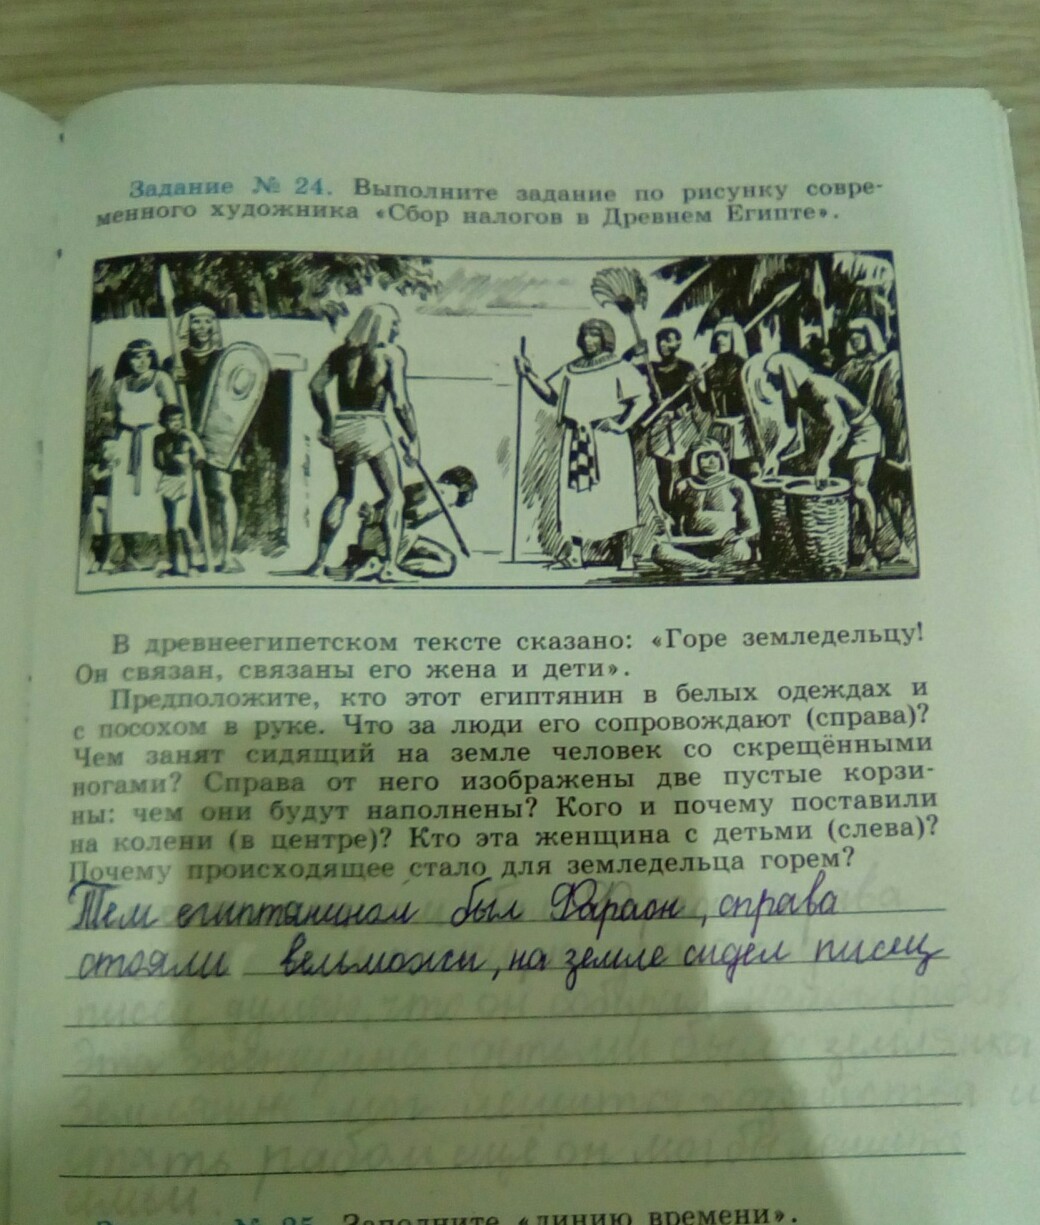 Задание № 24. Выполните задание по рисунку совре-
менного художника «Сбор налогов в Древнем Египте».
В древнеегипетском тексте сказано: «Горе земледельцу!
Он связан, связаны его жена и дети».
Предположите, кто этот египтянин в белых одеждах и
с посохом в руке. Что за люди его сопровождают (справа)?
Чем занят сидящий на земле человек со скрещёнными
ногами? Справа от него изображены две пустые корзи-
ны: чем они будут наполнены? Кого и почему поставили
на колени (в центре)? Кто эта женщина с детьми (слева)?
Почему происходящее стало для земледельца горем?
Тем египтянином был Фараон, справа
стояли вельможи, на земле сидел писец
писец, что он
Эта женщина с детьми была
хозяйства и
стать рабом ещё он мог бы
семьи.
№ 25. Заполните «линию времени».